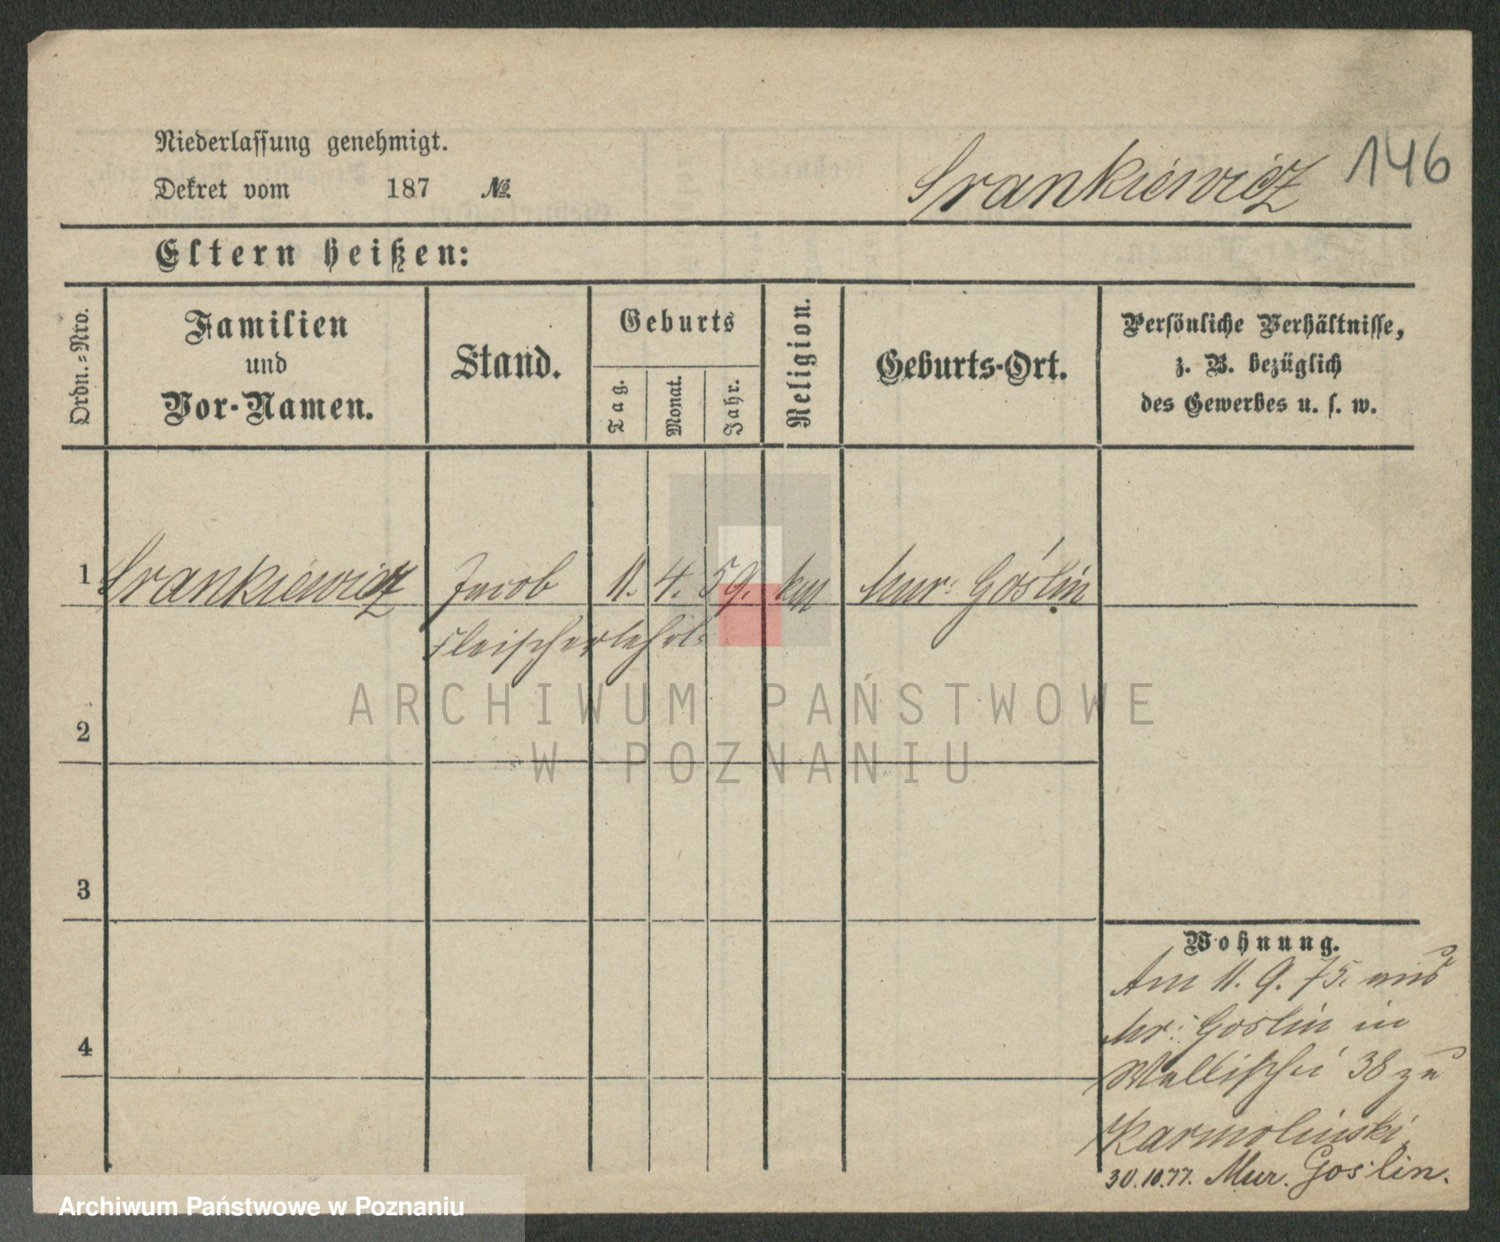 Niederlassung genehmigt.
Dekret vom 187 №
Srankiewicz 146
Eltern heißen:
Ordn.-Nro.
Familien
und
Vor-Namen.
Stand.
Geburts
Tag.
Monat.
Jahr.
Religion.
Geburts-Ort.
Persönliche Verhältnisse,
z. B. bezüglich
des Gewerbes u. s. w.
1 Srankiewicz Jacob 11. 4. 59. Mur: Góslin
Fleischerlehrl:
ARCHIWUM PAŃSTWOWE
W POZNANIU
2
3
4
Wohnung.
Am 11. 9. 75. aus
Mr: Goslin in
Wallischei 38 zu
Karmolinski.
30.10.77. Mur. Goslin.
Archiwum Państwowe w Poznaniu